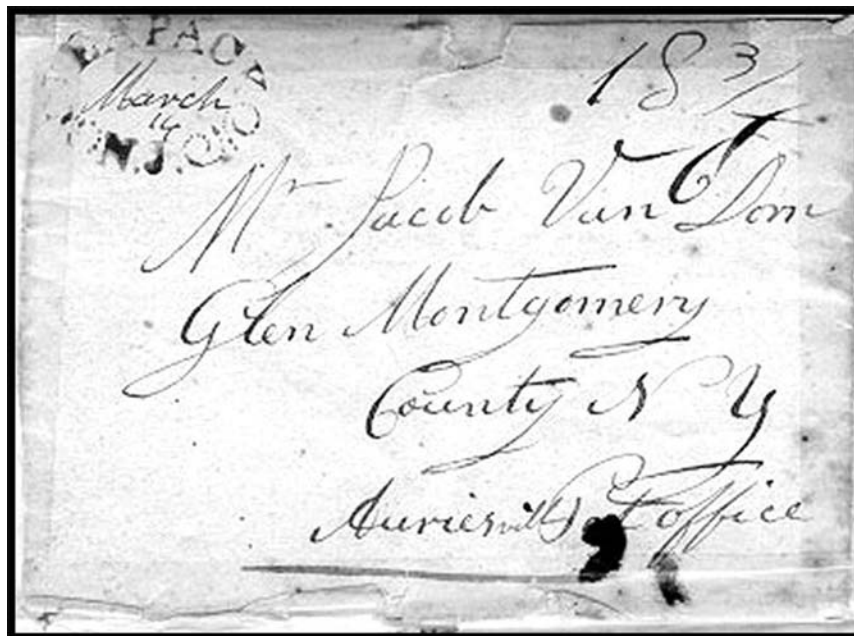 PAC
March
14
N.J.
18 3/
Mr Jacob Van Dorn
Glen Montgomery
County N Y
Auriesville Post office